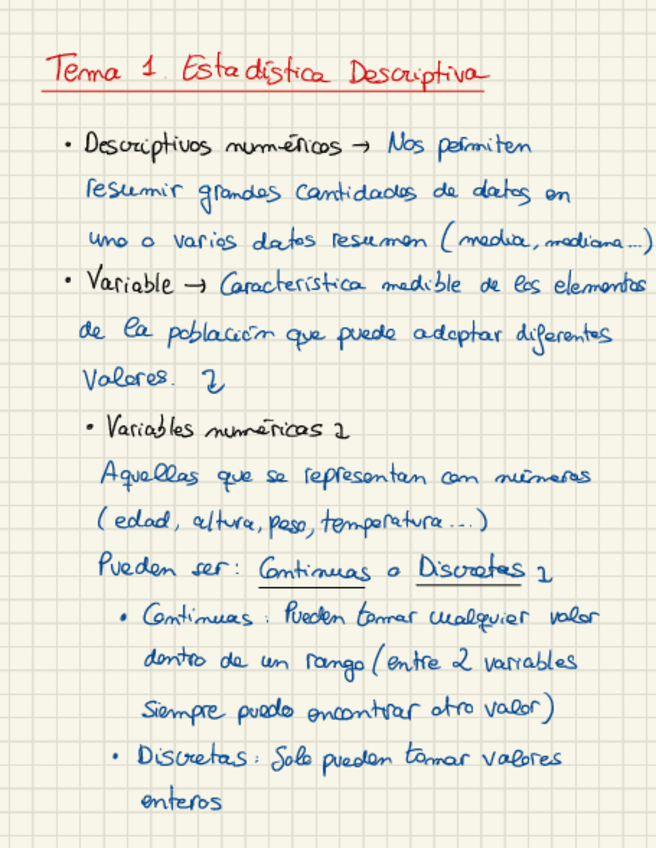 Tema 1. Estadística Descriptiva
• Descriptivos numéricos → Nos permiten
resumir grandes cantidades de datos en
uno o varios datos resumen (media, mediana...)
• Variable → Característica medible de los elementos
de la población que puede adoptar diferentes
valores. ⤵
• Variables numéricas ⤵
Aquellas que se representan con números
(edad, altura, peso, temperatura...)
Pueden ser: Continuas o Discretas ⤵
• Continuas: Pueden tomar cualquier valor
dentro de un rango (entre 2 variables
siempre puedo encontrar otro valor)
• Discretas: Solo pueden tomar valores
enteros